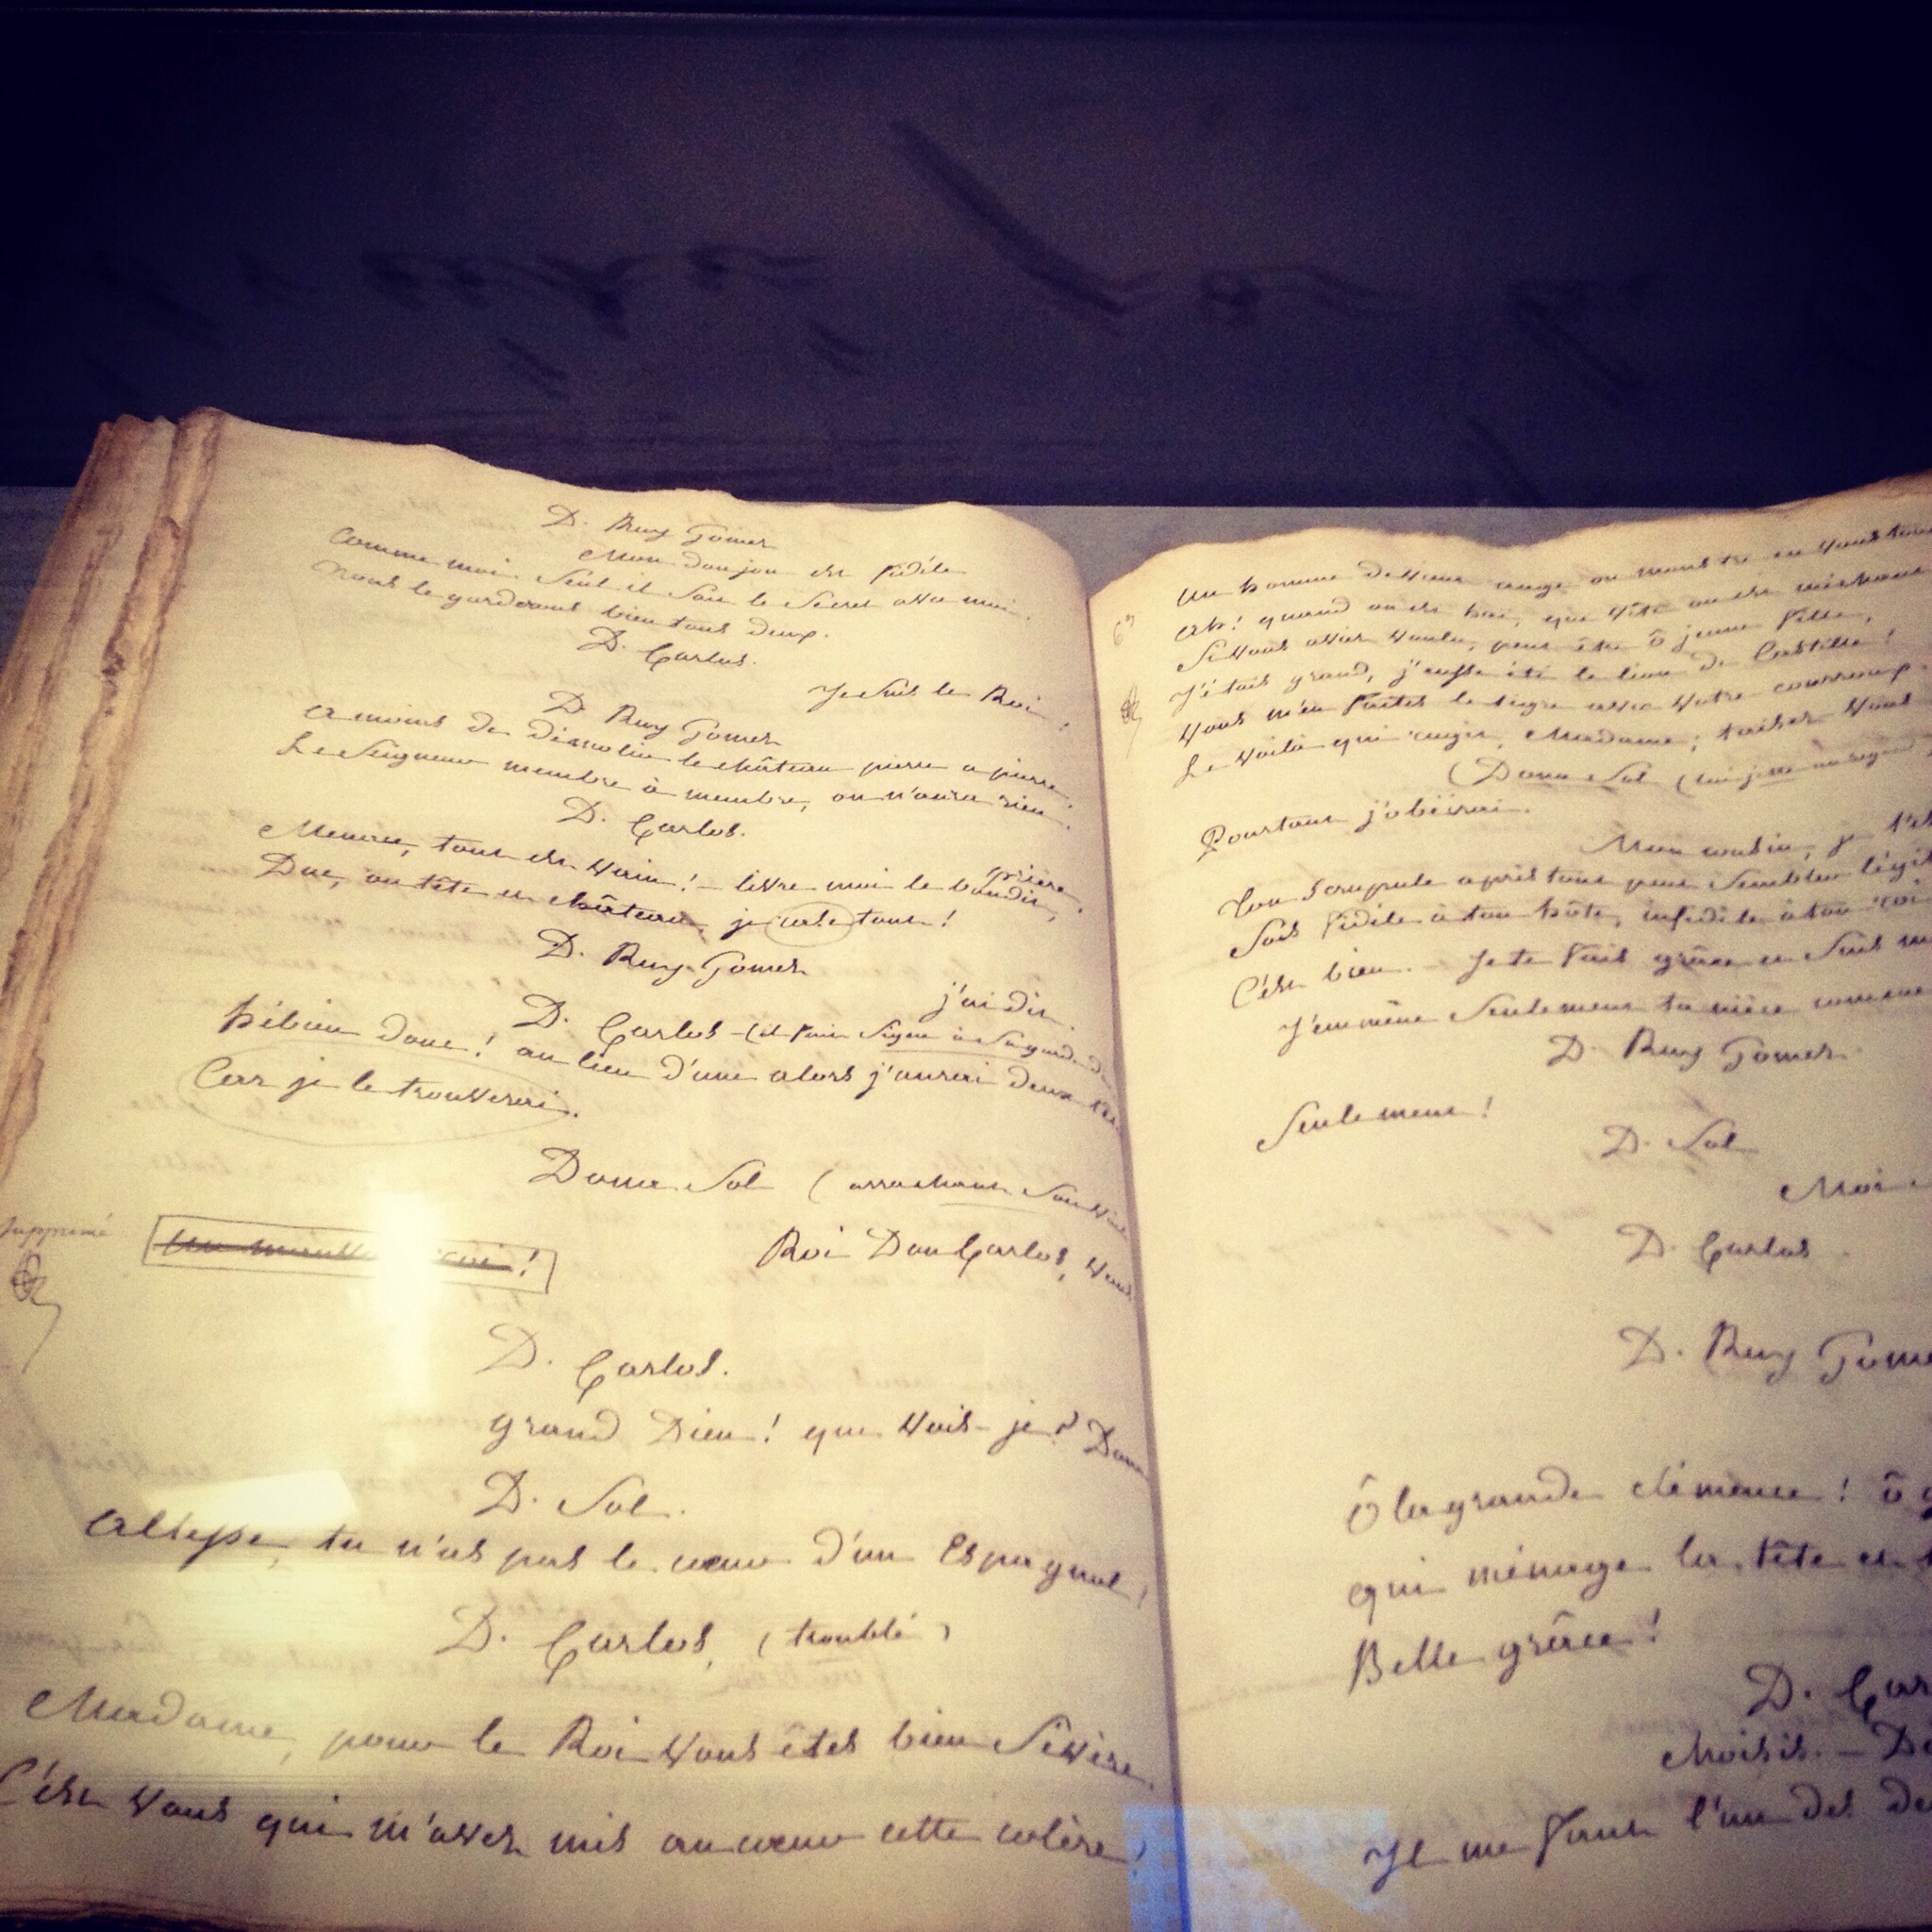 D. Ruy Gomez
Mon donjon est fidèle
Comme moi. Seul il sait le secret avec moi.
Nous le garderons bien tous deux.
D. Carlos.
Je suis le Roi !
D Ruy Gomez
A moins de démolir le château pierre a pierre,
Le Seigneur membre à membre, on n'aura rien.
D. Carlos.
prière,
Menace, tout est vain ! – livre moi le bandit,
Duc, ou tête et château, je tout !
D. Ruy Gomez
j'ai dit.
D. Carlos – (il fait signe à
hébien donc ! au lieu d'une alors j'aurai deux
Car je le trouverai.
Dona Sol ( arrachant son
supprimé
!
Roi Don Carlos, vous
D. Carlos.
grand Dieu ! que vois-je ? Dona
D. Sol.
Altesse, tu n'as pas le cœur d'un Espagnol !
D. Carlos, ( troublé )
Madame, pour le Roi vous êtes bien sévère.
C'est vous qui m'avez mis au cœur cette colère !
Un homme devient ange ou monstre en vous
Ah ! quand on est haï, que vite on est méchant
Si vous aviez voulu, peut être ô jeune fille,
J'étais grand, j'eusse été le lion de Castille !
Vous m'en faites le tigre avec votre courroux
Le voilà qui rugit, Madame ; taisez vous
(Dona Sol (lui jette un regard
Pourtant j'obéirai.
Mon cousin, je
Ton scrupule après tout peut sembler
Sois fidèle à ton hôte, infidèle à ton roi
C'est bien. – Je te fais grâce et suis
J'emmène seulement ta nièce comme
D. Ruy Gomez
Seulement !
D. Sol
Moi
D. Carlos
D. Ruy Gome
Ô la grande clémence ! ô
qui ménage la tête et
Belle grâce !
D. Car
Choisis. –
Il me faut l'un des de